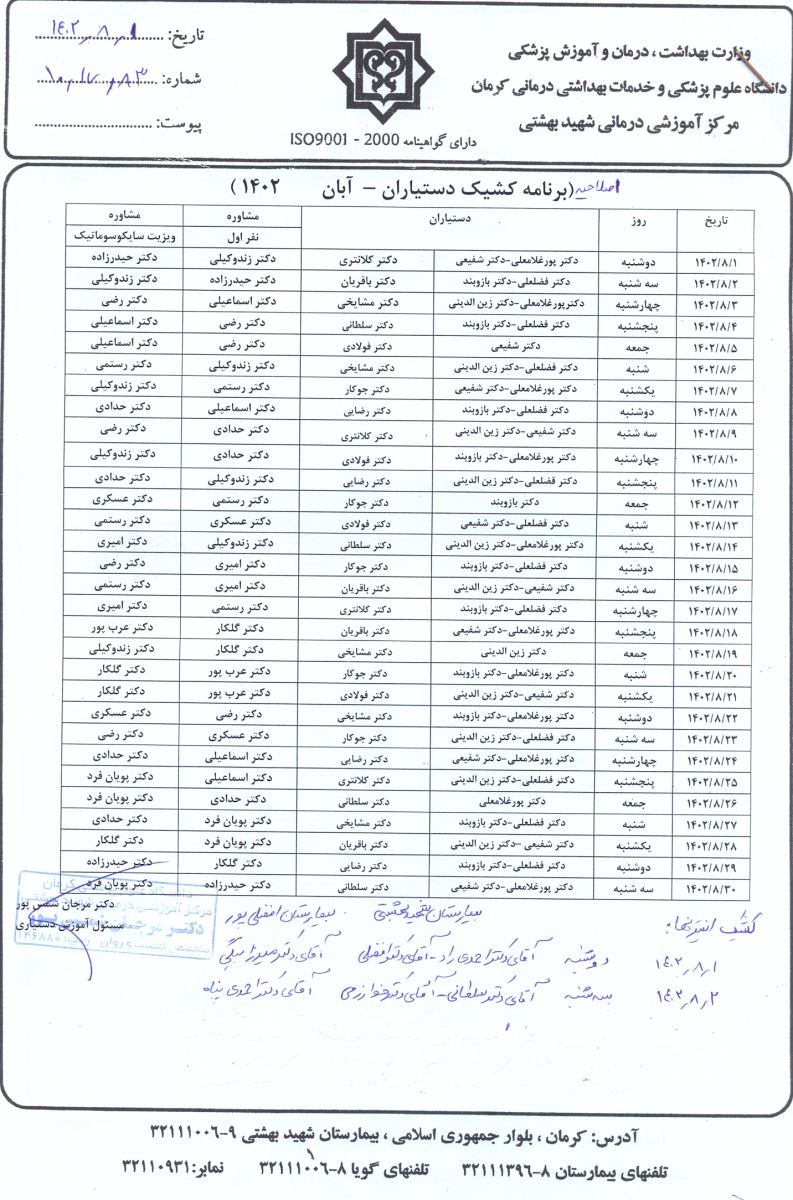 وزارت بهداشت ، درمان و آموزش پزشکی
دانشگاه علوم پزشکی و خدمات بهداشتی درمانی کرمان
مرکز آموزشی درمانی شهید بهشتی
دارای گواهینامه ISO9001 - 2000
تاریخ: ۱۴۰۲٫۸٫۱
شماره:
پیوست:
اصلاحیه (برنامه کشیک دستیاران – آبان ۱۴۰۲ )
تاریخ روز دستیاران مشاوره مشاوره
نفر اول ویزیت سایکوسوماتیک
۱۴۰۲/۸/۱ دوشنبه دکتر پورغلامعلی-دکتر شفیعی دکتر کلانتری دکتر زندوکیلی دکتر حیدرزاده
۱۴۰۲/۸/۲ سه شنبه دکتر فضلعلی-دکتر بازوبند دکتر باقریان دکتر حیدرزاده دکتر زندوکیلی
۱۴۰۲/۸/۳ چهارشنبه دکترپورغلامعلی-دکتر زین الدینی دکتر مشایخی دکتر اسماعیلی دکتر رضی
۱۴۰۲/۸/۴ پنجشنبه دکتر فضلعلی-دکتر بازوبند دکتر سلطانی دکتر رضی دکتر اسماعیلی
۱۴۰۲/۸/۵ جمعه دکتر شفیعی دکتر فولادی دکتر رضی دکتر اسماعیلی
۱۴۰۲/۸/۶ شنبه دکتر فضلعلی-دکتر زین الدینی دکتر مشایخی دکتر زندوکیلی دکتر رستمی
۱۴۰۲/۸/۷ یکشنبه دکتر پورغلامعلی-دکتر شفیعی دکتر جوکار دکتر رستمی دکتر زندوکیلی
۱۴۰۲/۸/۸ دوشنبه دکتر فضلعلی-دکتر بازوبند دکتر رضایی دکتر اسماعیلی دکتر حدادی
۱۴۰۲/۸/۹ سه شنبه دکتر شفیعی-دکتر زین الدینی دکتر کلانتری دکتر حدادی دکتر رضی
۱۴۰۲/۸/۱۰ چهارشنبه دکتر پورغلامعلی-دکتر بازوبند دکتر فولادی دکتر حدادی دکتر زندوکیلی
۱۴۰۲/۸/۱۱ پنجشنبه دکتر فضلعلی-دکتر زین الدینی دکتر رضایی دکتر زندوکیلی دکتر حدادی
۱۴۰۲/۸/۱۲ جمعه دکتر بازوبند دکتر جوکار دکتر رستمی دکتر عسکری
۱۴۰۲/۸/۱۳ شنبه دکتر فضلعلی-دکتر شفیعی دکتر فولادی دکتر عسکری دکتر رستمی
۱۴۰۲/۸/۱۴ یکشنبه دکتر پورغلامعلی-دکتر زین الدینی دکتر سلطانی دکتر زندوکیلی دکتر امیری
۱۴۰۲/۸/۱۵ دوشنبه دکتر فضلعلی-دکتر بازوبند دکتر جوکار دکتر امیری دکتر رضی
۱۴۰۲/۸/۱۶ سه شنبه دکتر شفیعی-دکتر زین الدینی دکتر باقریان دکتر امیری دکتر رستمی
۱۴۰۲/۸/۱۷ چهارشنبه دکتر فضلعلی-دکتر بازوبند دکتر کلانتری دکتر رستمی دکتر امیری
۱۴۰۲/۸/۱۸ پنجشنبه دکتر پورغلامعلی-دکتر شفیعی دکتر باقریان دکتر گلکار دکتر عرب پور
۱۴۰۲/۸/۱۹ جمعه دکتر زین الدینی دکتر مشایخی دکتر گلکار دکتر زندوکیلی
۱۴۰۲/۸/۲۰ شنبه دکتر پورغلامعلی-دکتر بازوبند دکتر جوکار دکتر عرب پور دکتر گلکار
۱۴۰۲/۸/۲۱ یکشنبه دکتر شفیعی-دکتر زین الدینی دکتر فولادی دکتر عرب پور دکتر گلکار
۱۴۰۲/۸/۲۲ دوشنبه دکتر پورغلامعلی-دکتر بازوبند دکتر مشایخی دکتر رضی دکتر عسکری
۱۴۰۲/۸/۲۳ سه شنبه دکتر فضلعلی-دکتر زین الدینی دکتر جوکار دکتر عسکری دکتر رضی
۱۴۰۲/۸/۲۴ چهارشنبه دکتر پورغلامعلی-دکتر شفیعی دکتر رضایی دکتر اسماعیلی دکتر حدادی
۱۴۰۲/۸/۲۵ پنجشنبه دکتر فضلعلی-دکتر زین الدینی دکتر کلانتری دکتر اسماعیلی دکتر پویان فرد
۱۴۰۲/۸/۲۶ جمعه دکتر پورغلامعلی دکتر سلطانی دکتر حدادی دکتر پویان فرد
۱۴۰۲/۸/۲۷ شنبه دکتر فضلعلی-دکتر بازوبند دکتر مشایخی دکتر پویان فرد دکتر حدادی
۱۴۰۲/۸/۲۸ یکشنبه دکتر شفیعی -دکتر زین الدینی دکتر باقریان دکتر پویان فرد دکتر گلکار
۱۴۰۲/۸/۲۹ دوشنبه دکتر فضلعلی-دکتر بازوبند دکتر رضایی دکتر گلکار دکتر حیدرزاده
۱۴۰۲/۸/۳۰ سه شنبه دکتر پورغلامعلی-دکتر شفیعی دکتر سلطانی دکتر حیدرزاده دکتر پویان فرد
دکتر مرجان شمس پور
مسئول آموزش دستیاری
کشیک انترنها: بیمارستان شهید بهشتی بیمارستان افضلی پور
۱۴۰۲٫۸٫۱ دوشنبه آقای دکتر احمدی راد - آقای دکتر افضلی آقای دکتر میرزابیگی
۱۴۰۲٫۸٫۲ سه شنبه آقای دکتر سلطانی - آقای دکتر خوارزمی آقای دکتر احمدی پناه
آدرس: کرمان ، بلوار جمهوری اسلامی ، بیمارستان شهید بهشتی ۹-۳۲۱۱۱۰۰۶
تلفنهای بیمارستان ۸-۳۲۱۱۱۳۹۶ تلفنهای گویا ۸-۳۲۱۱۱۰۰۶ نمابر:۳۲۱۱۰۹۳۱